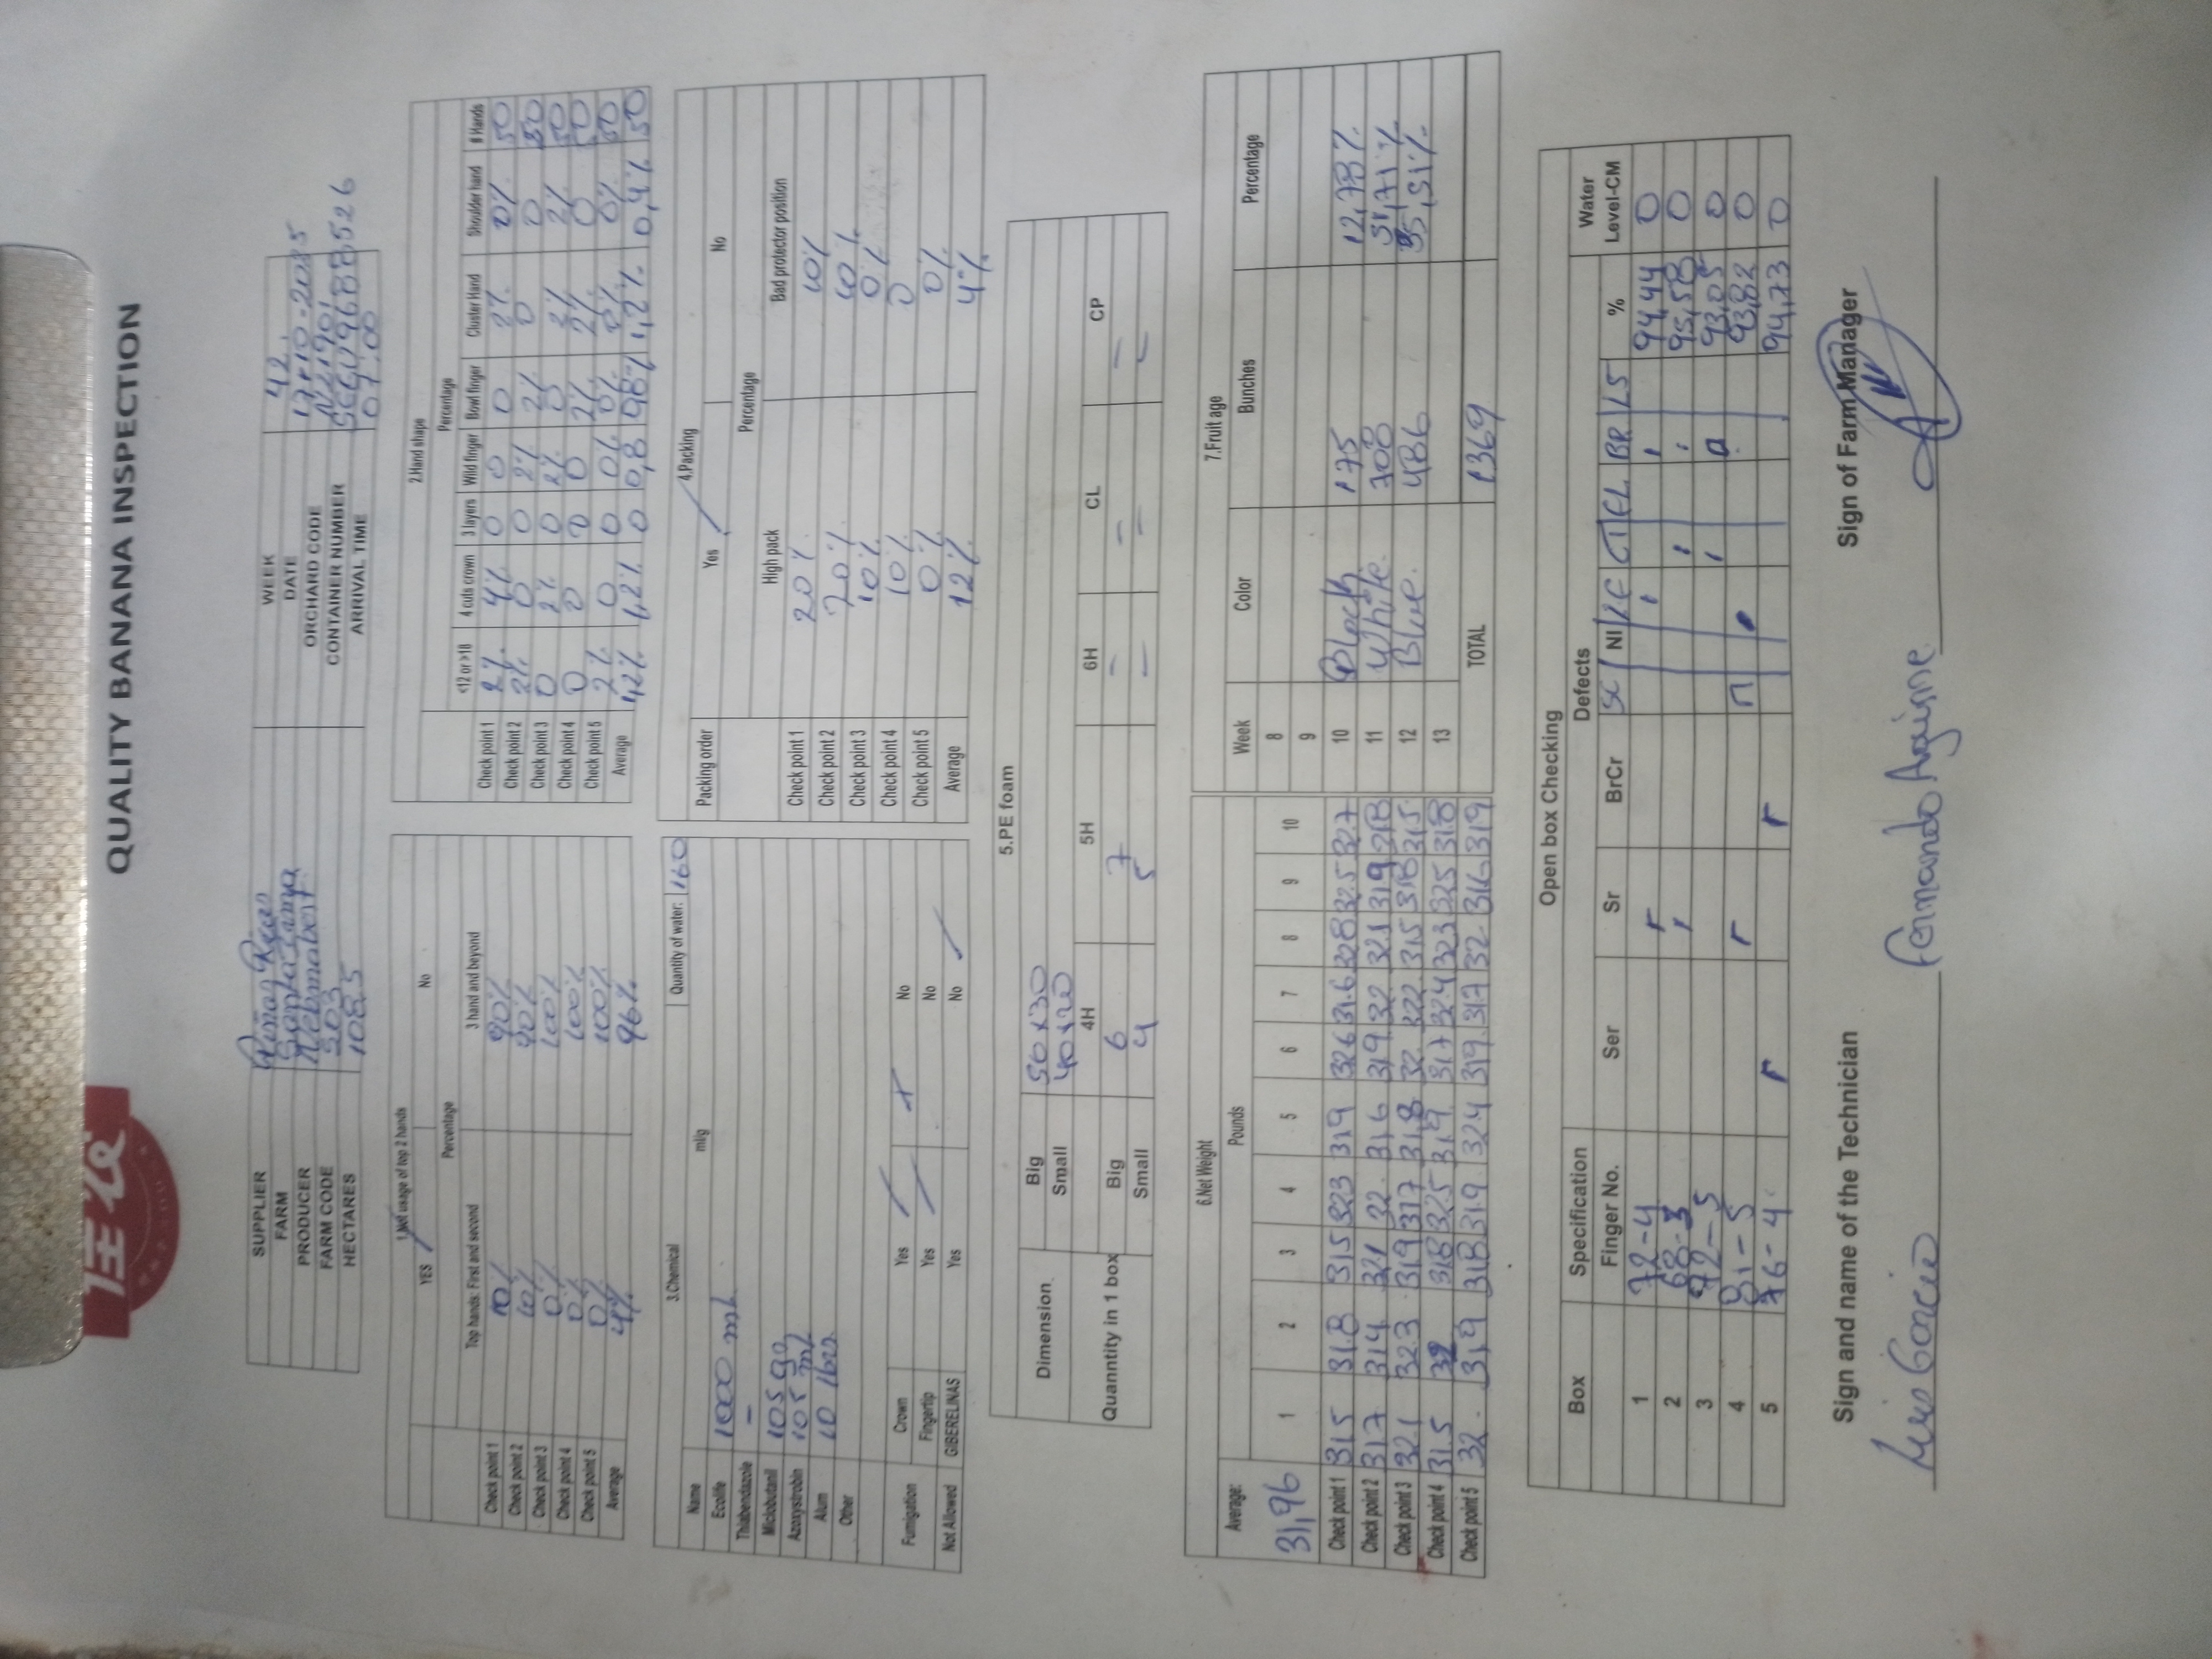 佳农
QUALITY BANANA INSPECTION
SUPPLIER Piñas Ricas WEEK 42.
FARM Santa Irma DATE 17-10-2025
PRODUCER ORCHARD CODE N21901
FARM CODE 503 CONTAINER NUMBER
HECTARES 108.5 ARRIVAL TIME 07:00
1.Not usage of top 2 hands
YES No
Percentage
Top hands: First and second 3 hand and beyond
Check point 1 10% 90%
Check point 2 10% 90%
Check point 3 0% 100%
Check point 4 0% 100%
Check point 5 0% 100%
Average 4% 96%
2.Hand shape
Percentage
<12 or >18 4 cuts crown 3 layers Wild finger Bowl finger Cluster Hand Shoulder hand # Hands
Check point 1 2% 4% 0 0 0 2% 0% 50
Check point 2 2% 0 0 2% 2% 0 0 50
Check point 3 0 2% 0 2% 0 2% 2% 50
Check point 4 0 0 0 0 2% 2% 0 50
Check point 5 2% 0 0 0% 0% 0% 0% 50
Average 1,2% 1,2% 0 0,8 1,2% 0,4% 50
3.Chemical Quantity of water: 160
Name ml/g
Ecolife 1000 ml
Thiabendazole -
Miclobutanil 105 gr
Azoxystrobin 105 ml
Alum 10 lbs
Other
Fumigation Crown Yes No
Fingertip Yes No
Not Allowed GIBERELINAS Yes No
4.Packing
Packing order Yes No
Percentage
High pack Bad protector position
Check point 1 20% 10%
Check point 2 20% 10%
Check point 3 10% 0%
Check point 4 10% 0
Check point 5 0% 0%
Average 12% 4%
5.PE foam
Dimension Big 50x30
Small 40x20
4H 5H 6H CL CP
Quanntity in 1 box Big 6 7 - - -
Small 4 5 - - -
6.Net Weight
Average: Pounds
31,96 1 2 3 4 5 6 7 8 9 10
Check point 1 31.5 31.8 31.5 32.3 31.9 32.6 31.6 32.8 32.5 32.7
Check point 2 31.7 31.4 32.1 32. 31.6 31.9 32. 32.1 31.9 31.8
Check point 3 32.1 32.3 31.9 31.7 31,8 32. 32.2. 31.5 31.8 31.5
Check point 4 31.5 32 31.8 32.5 31.9. 31.7 32.4 32.3 32.5 31.8
Check point 5 32. 31,9 31.8 31.9 32.4 31.9. 31.7 32 31.6 31.9
7.Fruit age
Week Color Bunches Percentage
8
9
10 Black 175 12,78%
11 White. 708 51,71%
12 Blue. 486 35,51%
13
TOTAL 1369
Open box Checking
Box Specification Defects Water
Finger No. Ser Sr BrCr SC NI LE CT FL BR LS % Level-CM
1 72-4 94,44 0
2 68-3 95,58 0
3 72-5 93,05 0
4 81-5 93,82 0
5 76-4 94,73 0
Sign and name of the Technician Sign of Farm Manager
Luis Garcia Fernando Aguirre